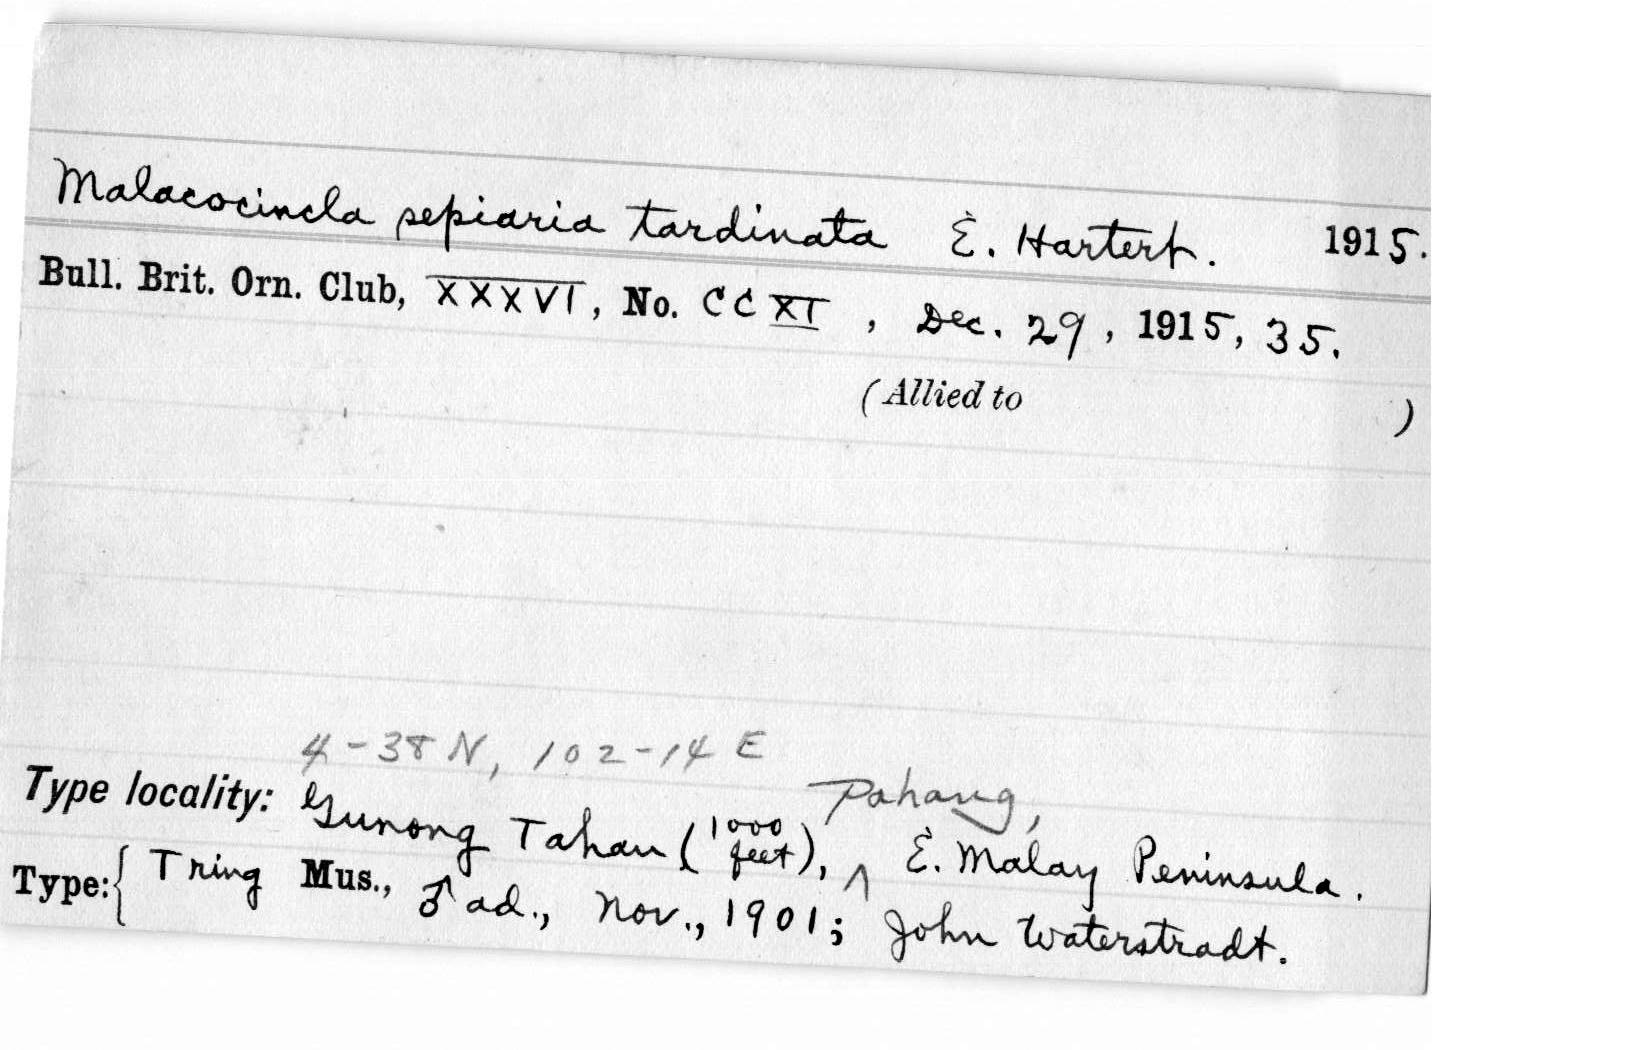 Malacocincla sepiaria tardinata E. Hartert. 1915.
Bull. Brit. Orn. Club, XXXVI, No. CCXI, Dec. 29, 1915, 35.
(Allied to )
4-38 N, 102-14 E
Pahang,
Type locality: Gunong Tahan (1000 feet), ^ E. Malay Peninsula.
Type: { Tring Mus., ♂ ad., Nov., 1901; John Waterstradt.